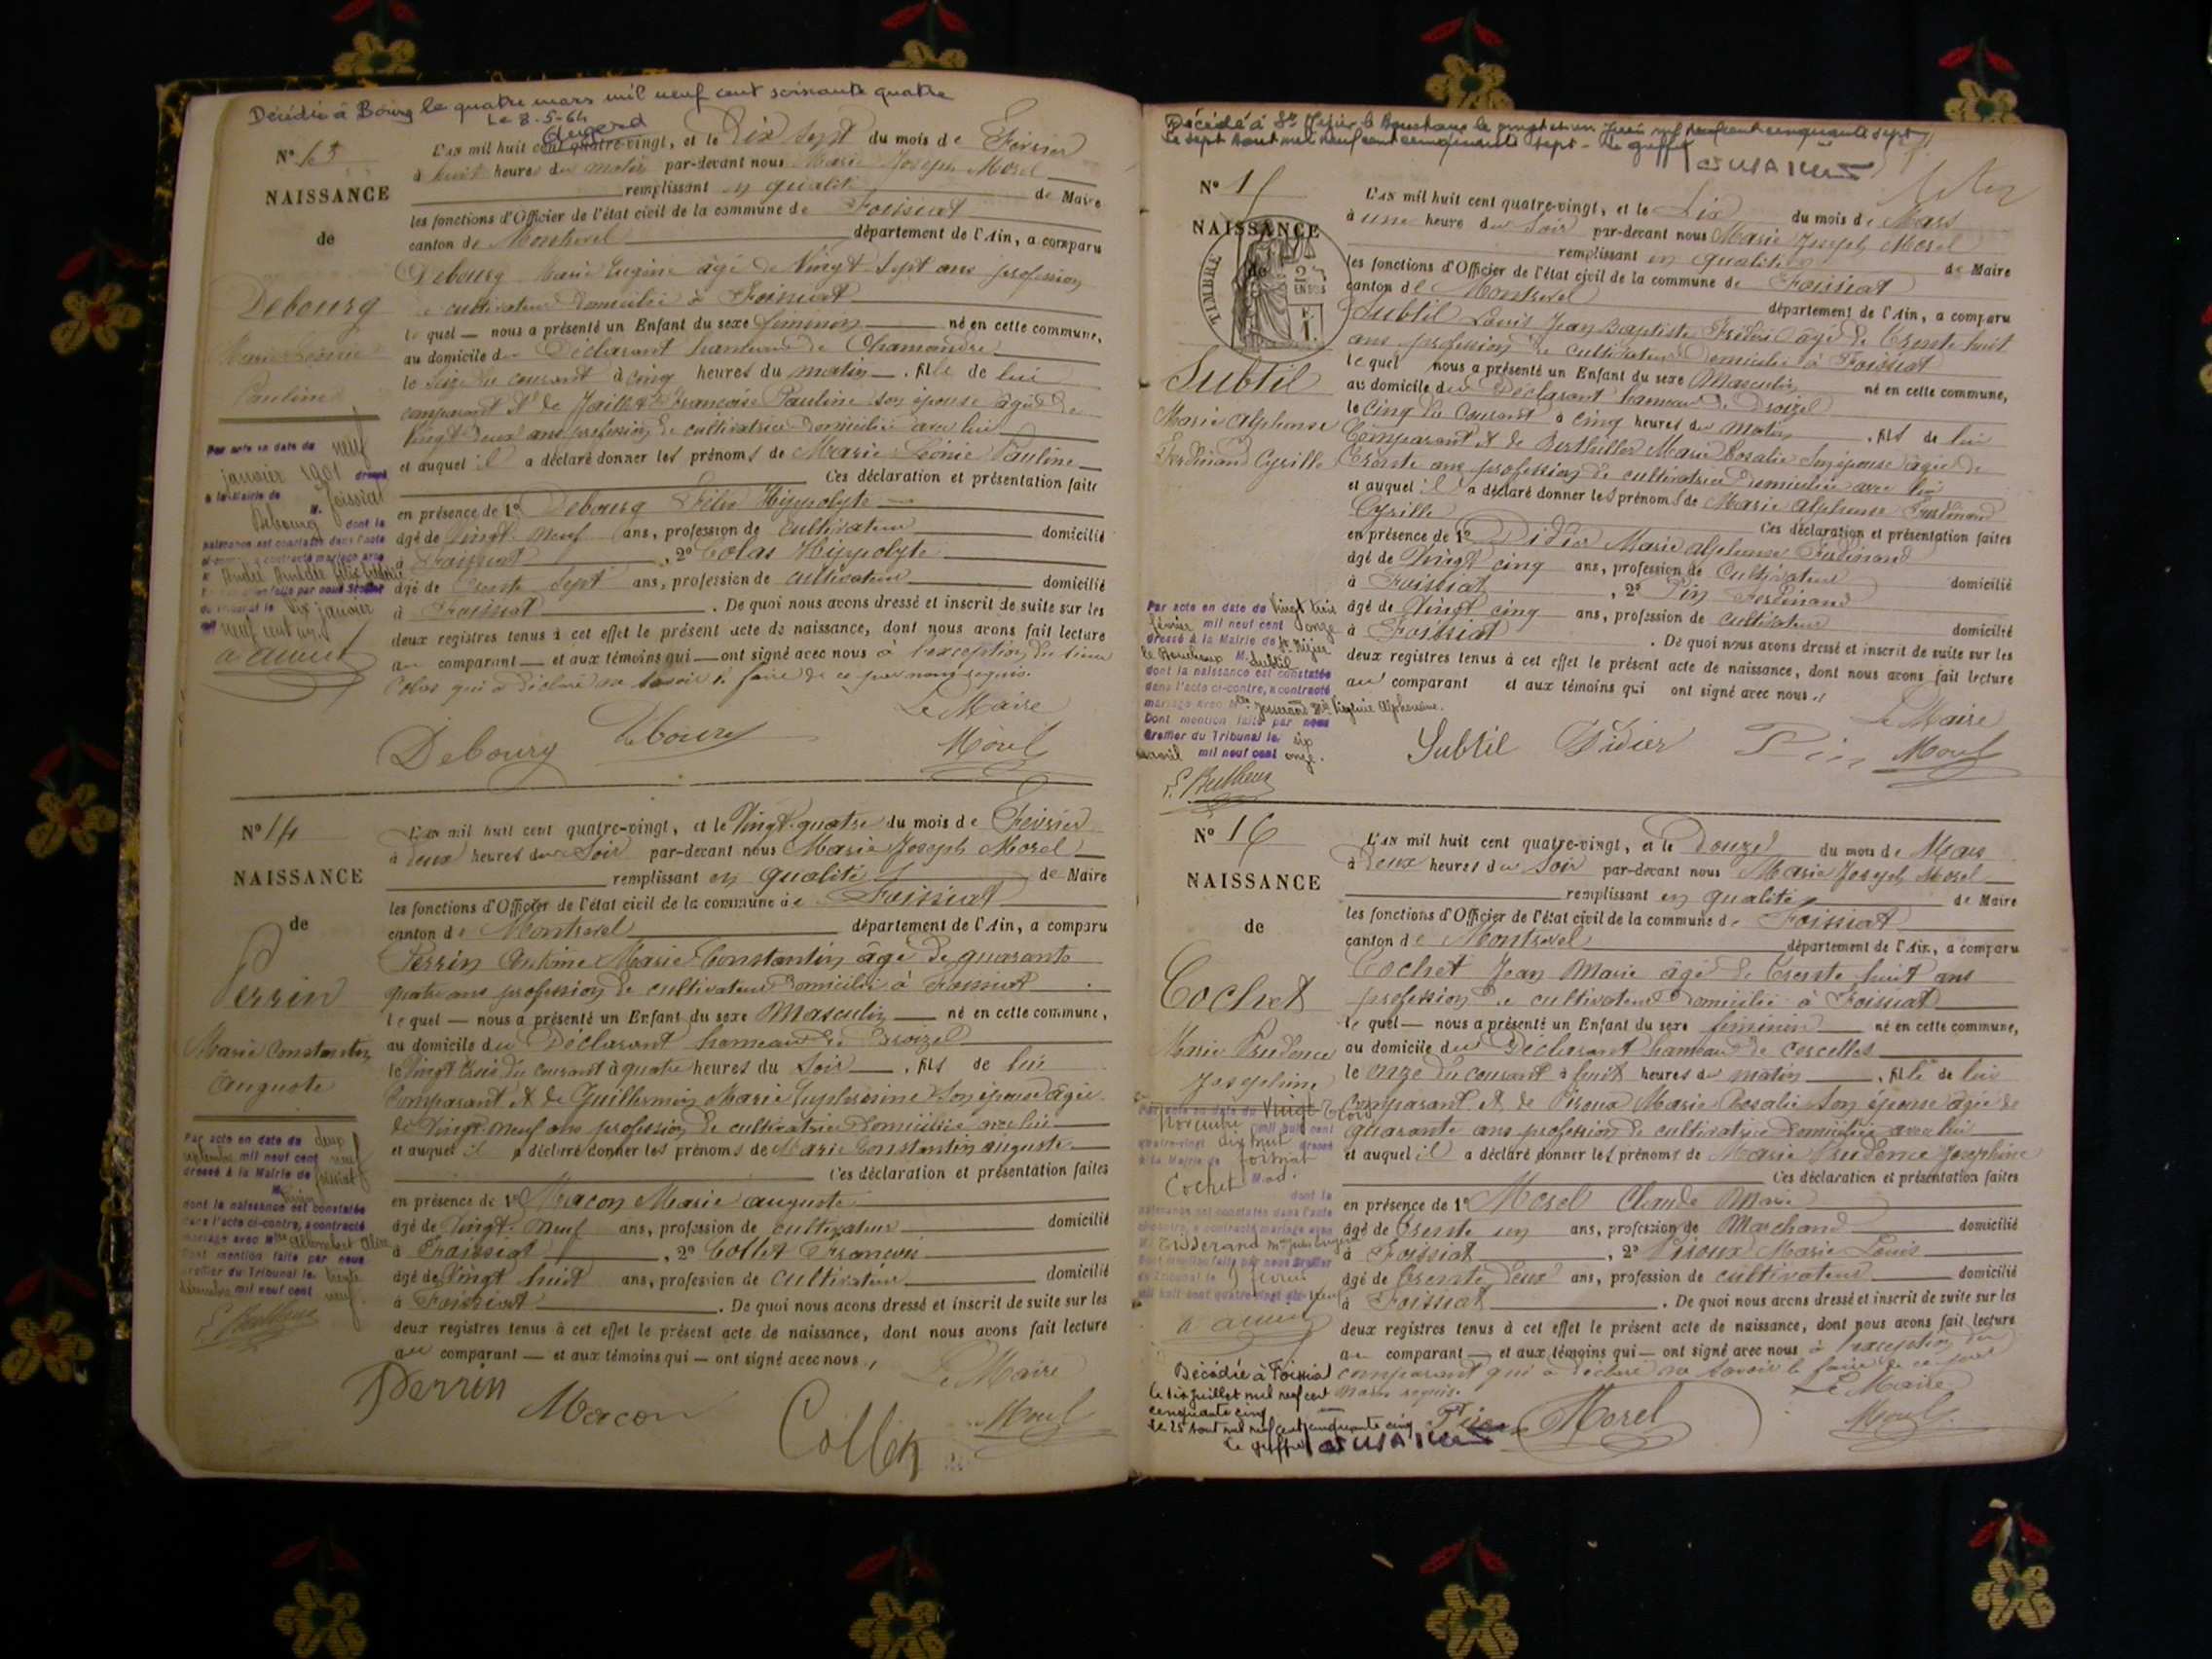 Décédée à Bourg le quatre mars mil neuf cent soixante quatre
Le 8-5-64
N° 13
NAISSANCE
de
Debourg
Marie Léonie
Pauline
L'AN mil huit cent quatre-vingt, et le Dix sept du mois de Février
à huit heures du matin par-devant nous Marie Joseph Morel
remplissant en qualité de Maire
les fonctions d'Officier de l'état civil de la commune de Foissiat
canton de Montrevel département de l'Ain, a comparu
Debourg Marie Eugène âgé de Vingt sept ans profession
de cultivateur domicilié à Foissiat
le quel — nous a présenté un Enfant du sexe féminin né en cette commune,
au domicile du Déclarant hameau de Chamandre
le seize du courant à cinq heures du matin, fille de lui
comparant et de Françoise Pauline son épouse âgée de
Vingt-deux ans profession de cultivatrice domiciliée avec lui
et auquel il a déclaré donner les prénoms de Marie Léonie Pauline
Ces déclaration et présentation faite
en présence de 1° Debourg Félix Hippolyte
âgé de Vingt-neuf ans, profession de cultivateur domicilié
à Foissiat, 2° Colas Hippolyte
âgé de trente sept ans, profession de cultivateur domicilié
à Foissiat. De quoi nous avons dressé et inscrit de suite sur les
deux registres tenus à cet effet le présent acte de naissance, dont nous avons fait lecture
au comparant — et aux témoins qui — ont signé avec nous à l'exception du sieur
Colas qui a déclaré ne savoir le faire de ce par nous requis.
Le Maire
Debourg Debourg Morel
Par acte en date du neuf
janvier 1901 dressé
à la Mairie de Foissiat
M. Debourg dont la
naissance est constatée dans l'acte
ci-contre a contracté mariage avec
du Tribunal le dix janvier
mil neuf cent un
N° 14
NAISSANCE
de
Perrin
Marie Constantin
Auguste
L'AN mil huit cent quatre-vingt, et le Vingt-quatre du mois de Février
à deux heures du Soir par-devant nous Marie Joseph Morel
remplissant en qualité de Maire
les fonctions d'Officier de l'état civil de la commune de Foissiat
canton de Montrevel département de l'Ain, a comparu
Perrin Antoine Marie Constantin âgé de quarante
quatre ans profession de cultivateur domicilié à Foissiat
le quel — nous a présenté un Enfant du sexe Masculin né en cette commune,
au domicile du Déclarant hameau de Droizel
le Vingt trois du courant à quatre heures du Soir, fils de lui
Comparant et de Guillermin Marie Euphrosine Son épouse âgée
de Vingt neuf ans profession de cultivatrice domiciliée avec lui
et auquel il a déclaré donner les prénoms de Marie Constantin Auguste
Ces déclaration et présentation faites
en présence de 1° Macon Marie Auguste
âgé de Vingt-neuf ans, profession de cultivateur domicilié
à Foissiat, 2° Collet François
âgé de Vingt huit ans, profession de cultivateur domicilié
à Foissiat. De quoi nous avons dressé et inscrit de suite sur les
deux registres tenus à cet effet le présent acte de naissance, dont nous avons fait lecture
au comparant — et aux témoins qui — ont signé avec nous,
Le Maire
Perrin Macon Collet Morel
Par acte en date du deux
septembre mil neuf cent neuf
dressé à la Mairie de Foissiat
M. Perrin
dont la naissance est constatée
dans l'acte ci-contre, a contracté
mariage avec Mlle Allombert Aline
Dont mention faite par nous
Greffier du Tribunal le trente
décembre mil neuf cent neuf.
Décédé à St Nizier le Bouchoux le vingt et un Juin mil neuf cent cinquante sept
Le sept aout mil neuf cent cinquante sept - Le greffier
N° 15
NAISSANCE
de
TIMBRE
Subtil
Marie Alphonse
Ferdinand Cyrille
L'AN mil huit cent quatre-vingt, et le Six du mois de Mars
à une heure du Soir par-devant nous Marie Joseph Morel
remplissant en qualité de Maire
les fonctions d'Officier de l'état civil de la commune de Foissiat
canton de Montrevel département de l'Ain, a comparu
Subtil Louis Jean Baptiste Frédéric âgé de trente huit
ans profession de cultivateur domicilié à Foissiat
le quel nous a présenté un Enfant du sexe Masculin né en cette commune,
au domicile du Déclarant hameau de Droizel
le Cinq du Courant à cinq heures du Matin, fils de lui
Comparant et de Berthillier Marie Rosalie Son épouse âgée de
trente ans profession de cultivatrice domiciliée avec lui
et auquel il a déclaré donner les prénoms de Marie Alphonse Ferdinand
Cyrille Ces déclaration et présentation faites
en présence de 1° Didier Marie Alphonse Ferdinand
âgé de Vingt cinq ans, profession de Cultivateur domicilié
à Foissiat, 2° Pin Ferdinand
âgé de Vingt cinq ans, profession de cultivateur domicilié
à Foissiat. De quoi nous avons dressé et inscrit de suite sur les
deux registres tenus à cet effet le présent acte de naissance, dont nous avons fait lecture
au comparant et aux témoins qui ont signé avec nous
Le Maire
Subtil Didier Pin Morel
Par acte en date du Vingt trois
février mil neuf cent onze
dressé à la Mairie de St Nizier
le Bouchoux M. Subtil
dont la naissance est constatée
dans l'acte ci-contre, a contracté
mariage avec Mlle Josserand Mie Virginie Alphonsine.
Dont mention faite par nous
Greffier du Tribunal le six
avril mil neuf cent onze.
N° 16
NAISSANCE
de
Cochet
Marie Prudence
Joséphine
L'AN mil huit cent quatre-vingt, et le Douze du mois de Mars
à deux heures du Soir par-devant nous Marie Joseph Morel
remplissant en qualité de Maire
les fonctions d'Officier de l'état civil de la commune de Foissiat
canton de Montrevel département de l'Ain, a comparu
Cochet Jean Marie âgé de trente huit ans
profession de cultivateur domicilié à Foissiat
le quel — nous a présenté un Enfant du sexe féminin né en cette commune,
au domicile du Déclarant hameau de Corcelles
le onze du courant à huit heures du matin, fille de lui
comparant et de Piroux Marie Rosalie Son épouse âgée de
quarante ans profession de cultivatrice domiciliée avec lui
et auquel il a déclaré donner les prénoms de Marie Prudence Joséphine
Ces déclaration et présentation faites
en présence de 1° Morel Claude Marie
âgé de trente un ans, profession de Marchand domicilié
à Foissiat, 2° Piroux Marie Louis
âgé de trente deux ans, profession de cultivateur domicilié
à Foissiat. De quoi nous avons dressé et inscrit de suite sur les
deux registres tenus à cet effet le présent acte de naissance, dont nous avons fait lecture
au comparant — et aux témoins qui — ont signé avec nous à l'exception du
comparant qui a déclaré ne savoir le faire de ce par
nous requis.
Le Maire
Morel Morel
Par acte en date du vingt
novembre mil huit cent
quatre-vingt dix huit dressé
à la Mairie de Foissiat
Cochet
dont la
naissance est constatée dans l'acte
ci-contre, a contracté mariage avec
Tisserand
Décédée à Foissiat
le six juillet mil neuf cent
cinquante cinq
Le 25 aout mil neuf cent cinquante cinq
Le greffier